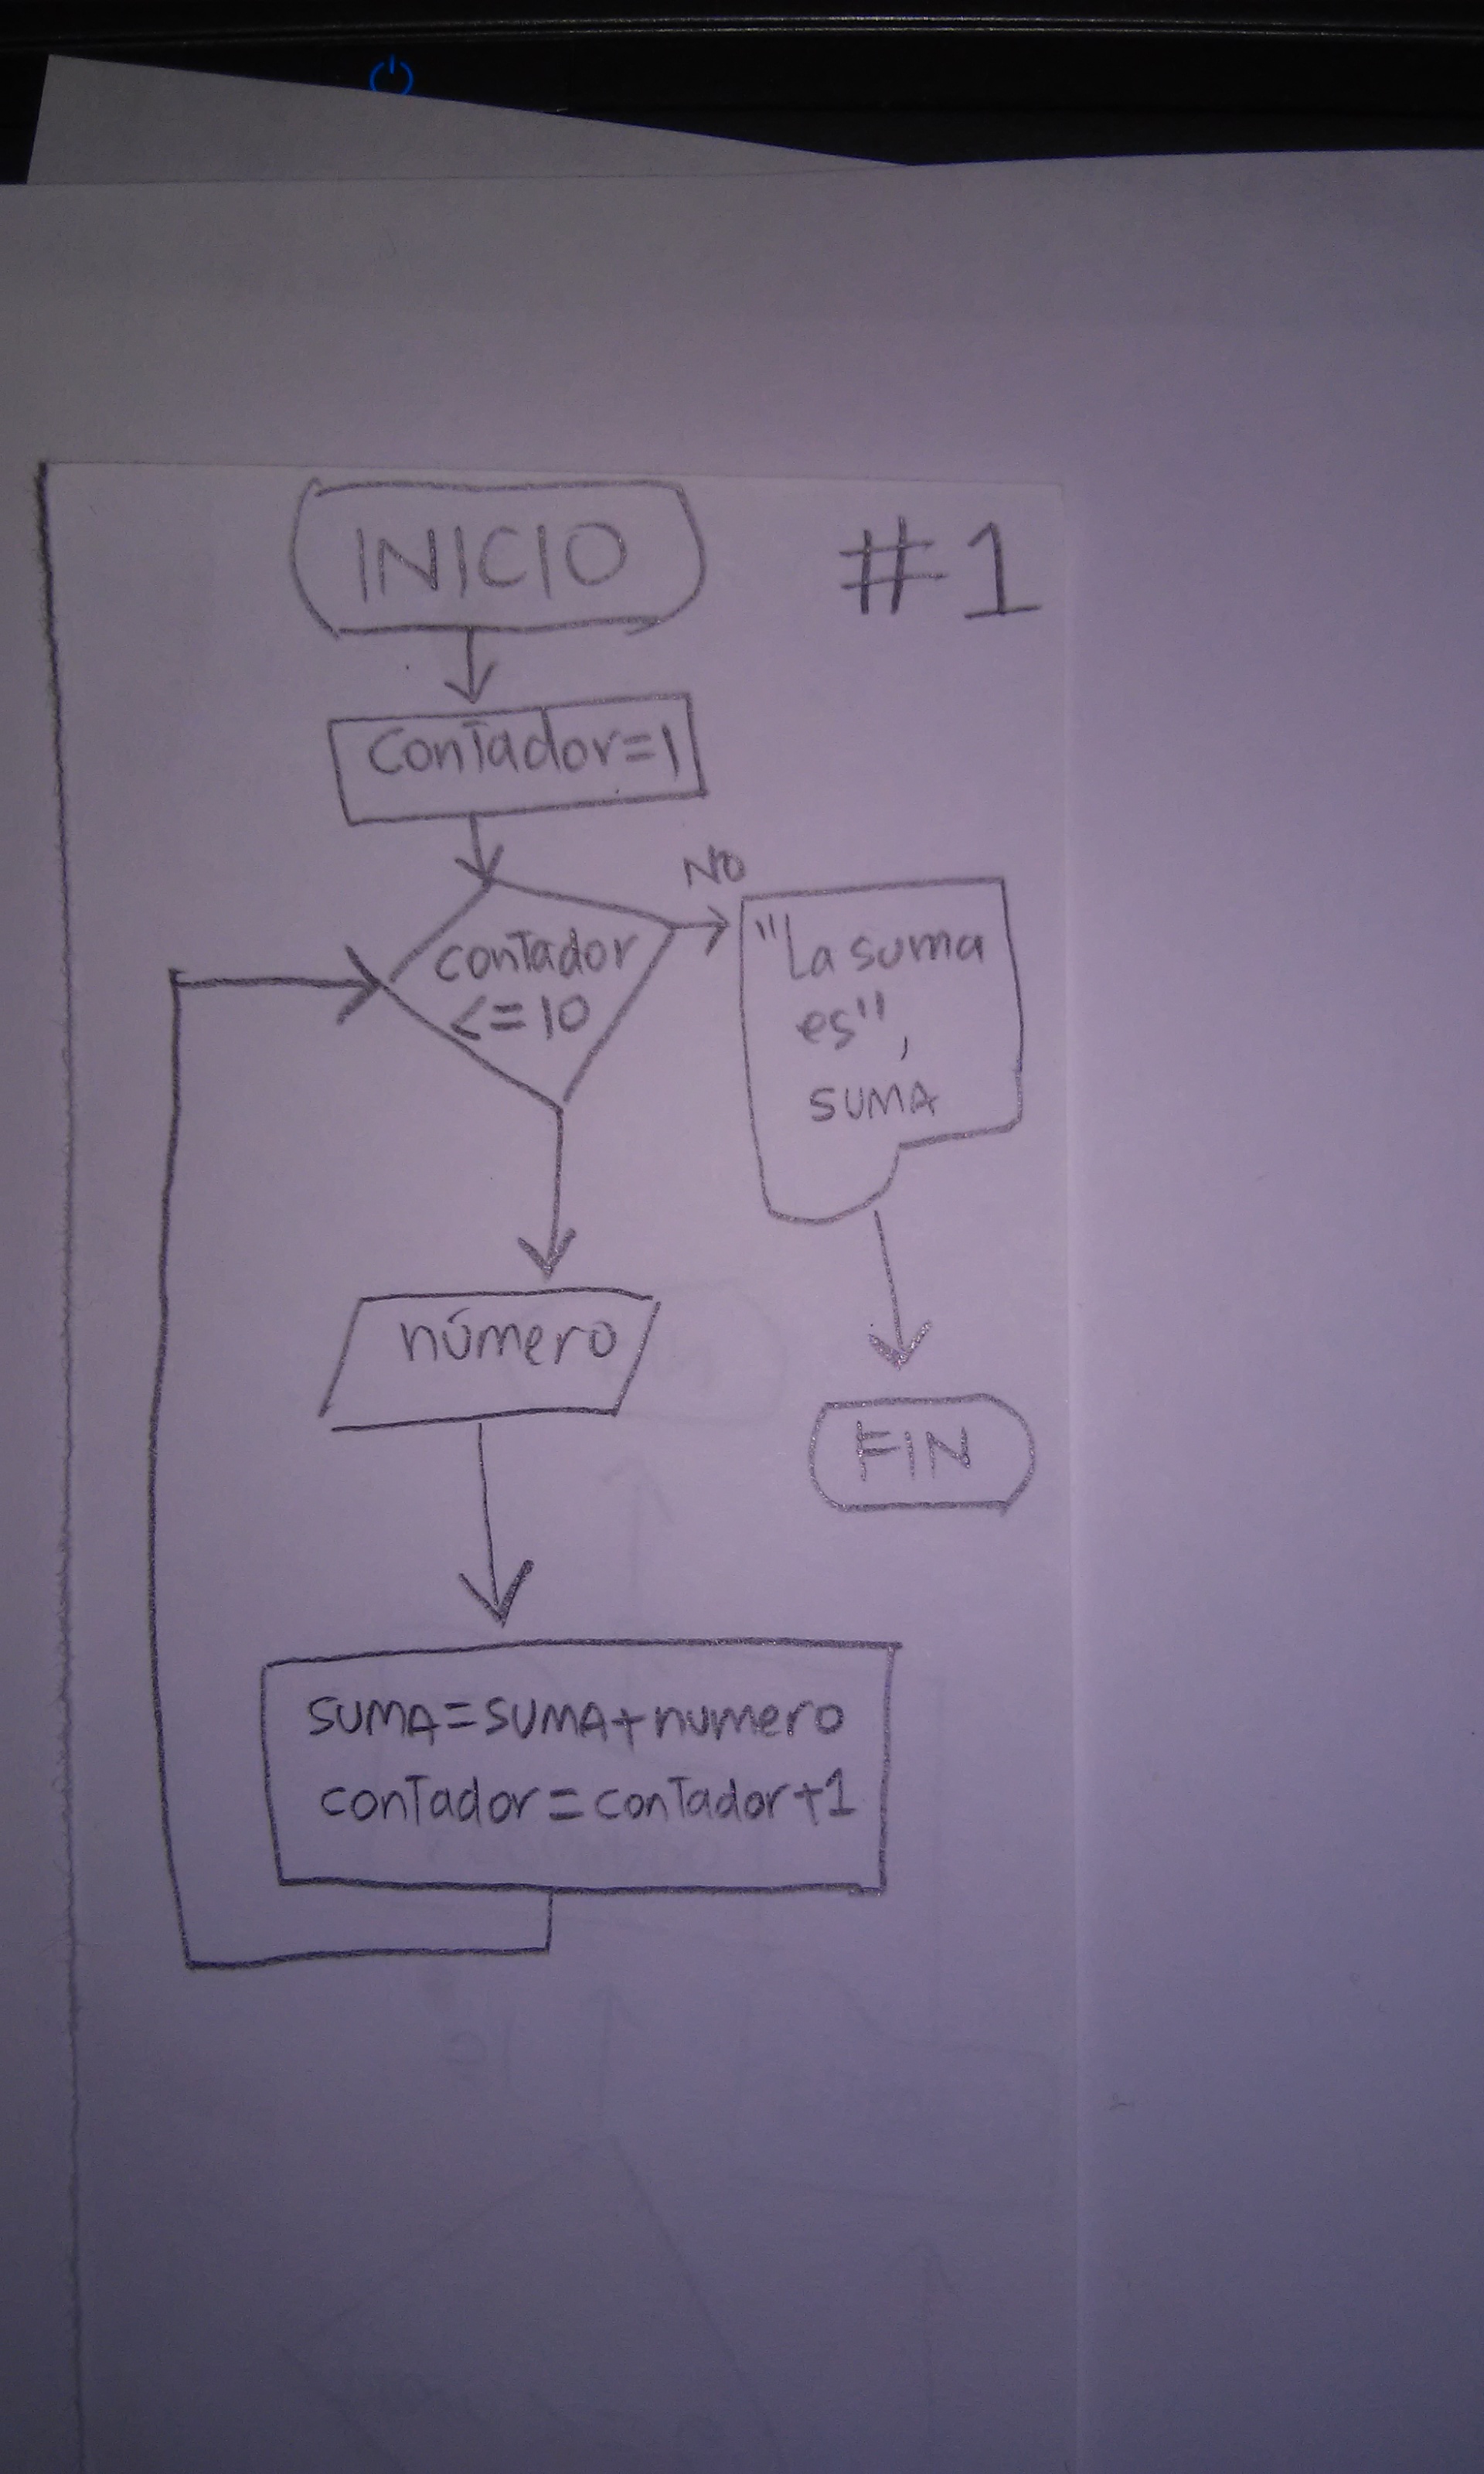 INICIO
#1
Contador=1
contador
<=10
NO
"La suma
es",
SUMA
número
FIN
SUMA=SUMA+numero
contador=contador+1